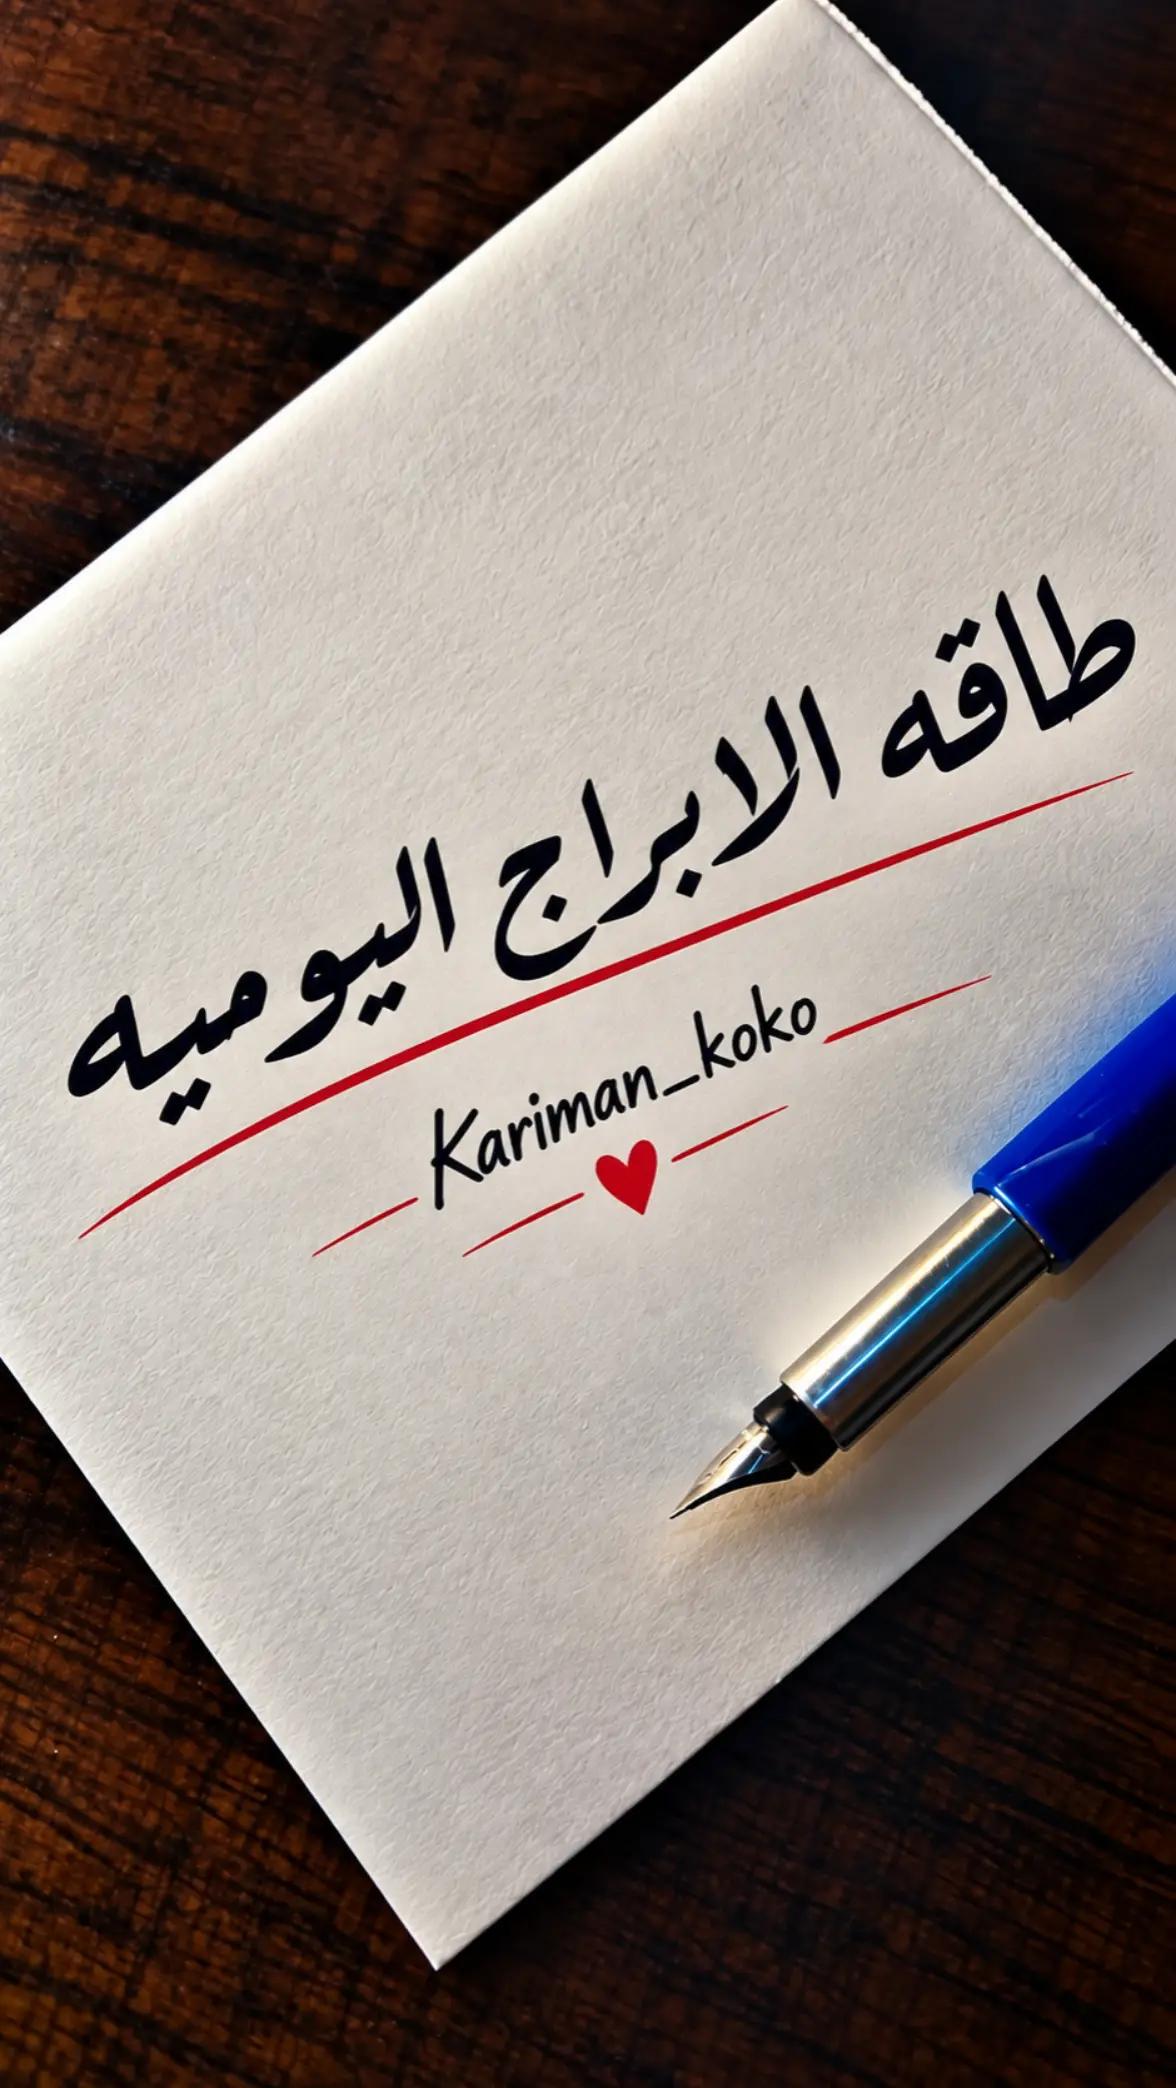 طاقه الابراج اليوميه
Kariman_koko